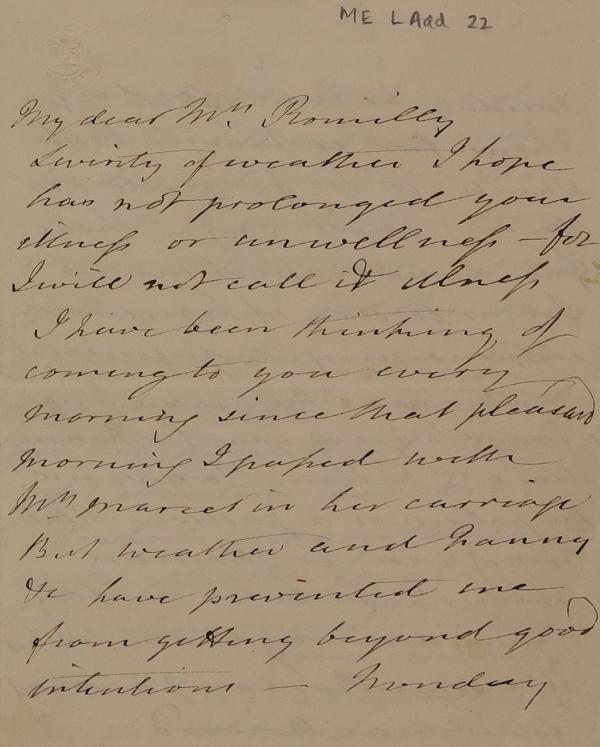 ME L Add 22
My dear Mrs. Romilly
Severity of weather I hope
has not prolonged your
illness or unwellness – for
I will not call it illness
I have been thinking of
coming to you every
morning since that pleasant
morning I passed with
Mrs Marcet in her carriage
But weather and Franny
&c have prevented me
from getting beyond good
intentions — Monday